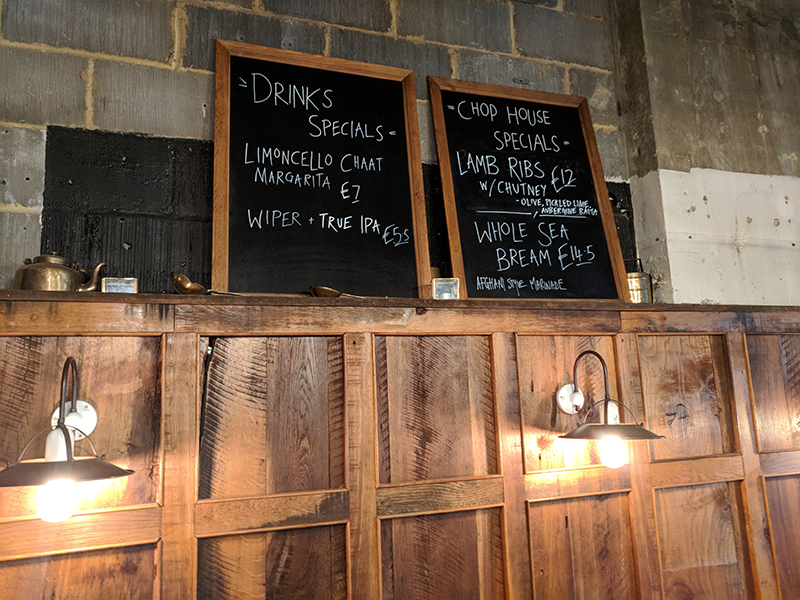 = DRINKS
SPECIALS =
LIMONCELLO CHAAT
MARGARITA £7
WIPER + TRUE IPA £5.5
= CHOP HOUSE
SPECIALS =
LAMB RIBS £12
W/ CHUTNEY
- OLIVE, PICKLED LIME,
AUBERGINE RAITA
WHOLE SEA
BREAM £14.5
AFGHANI STYLE MARINADE